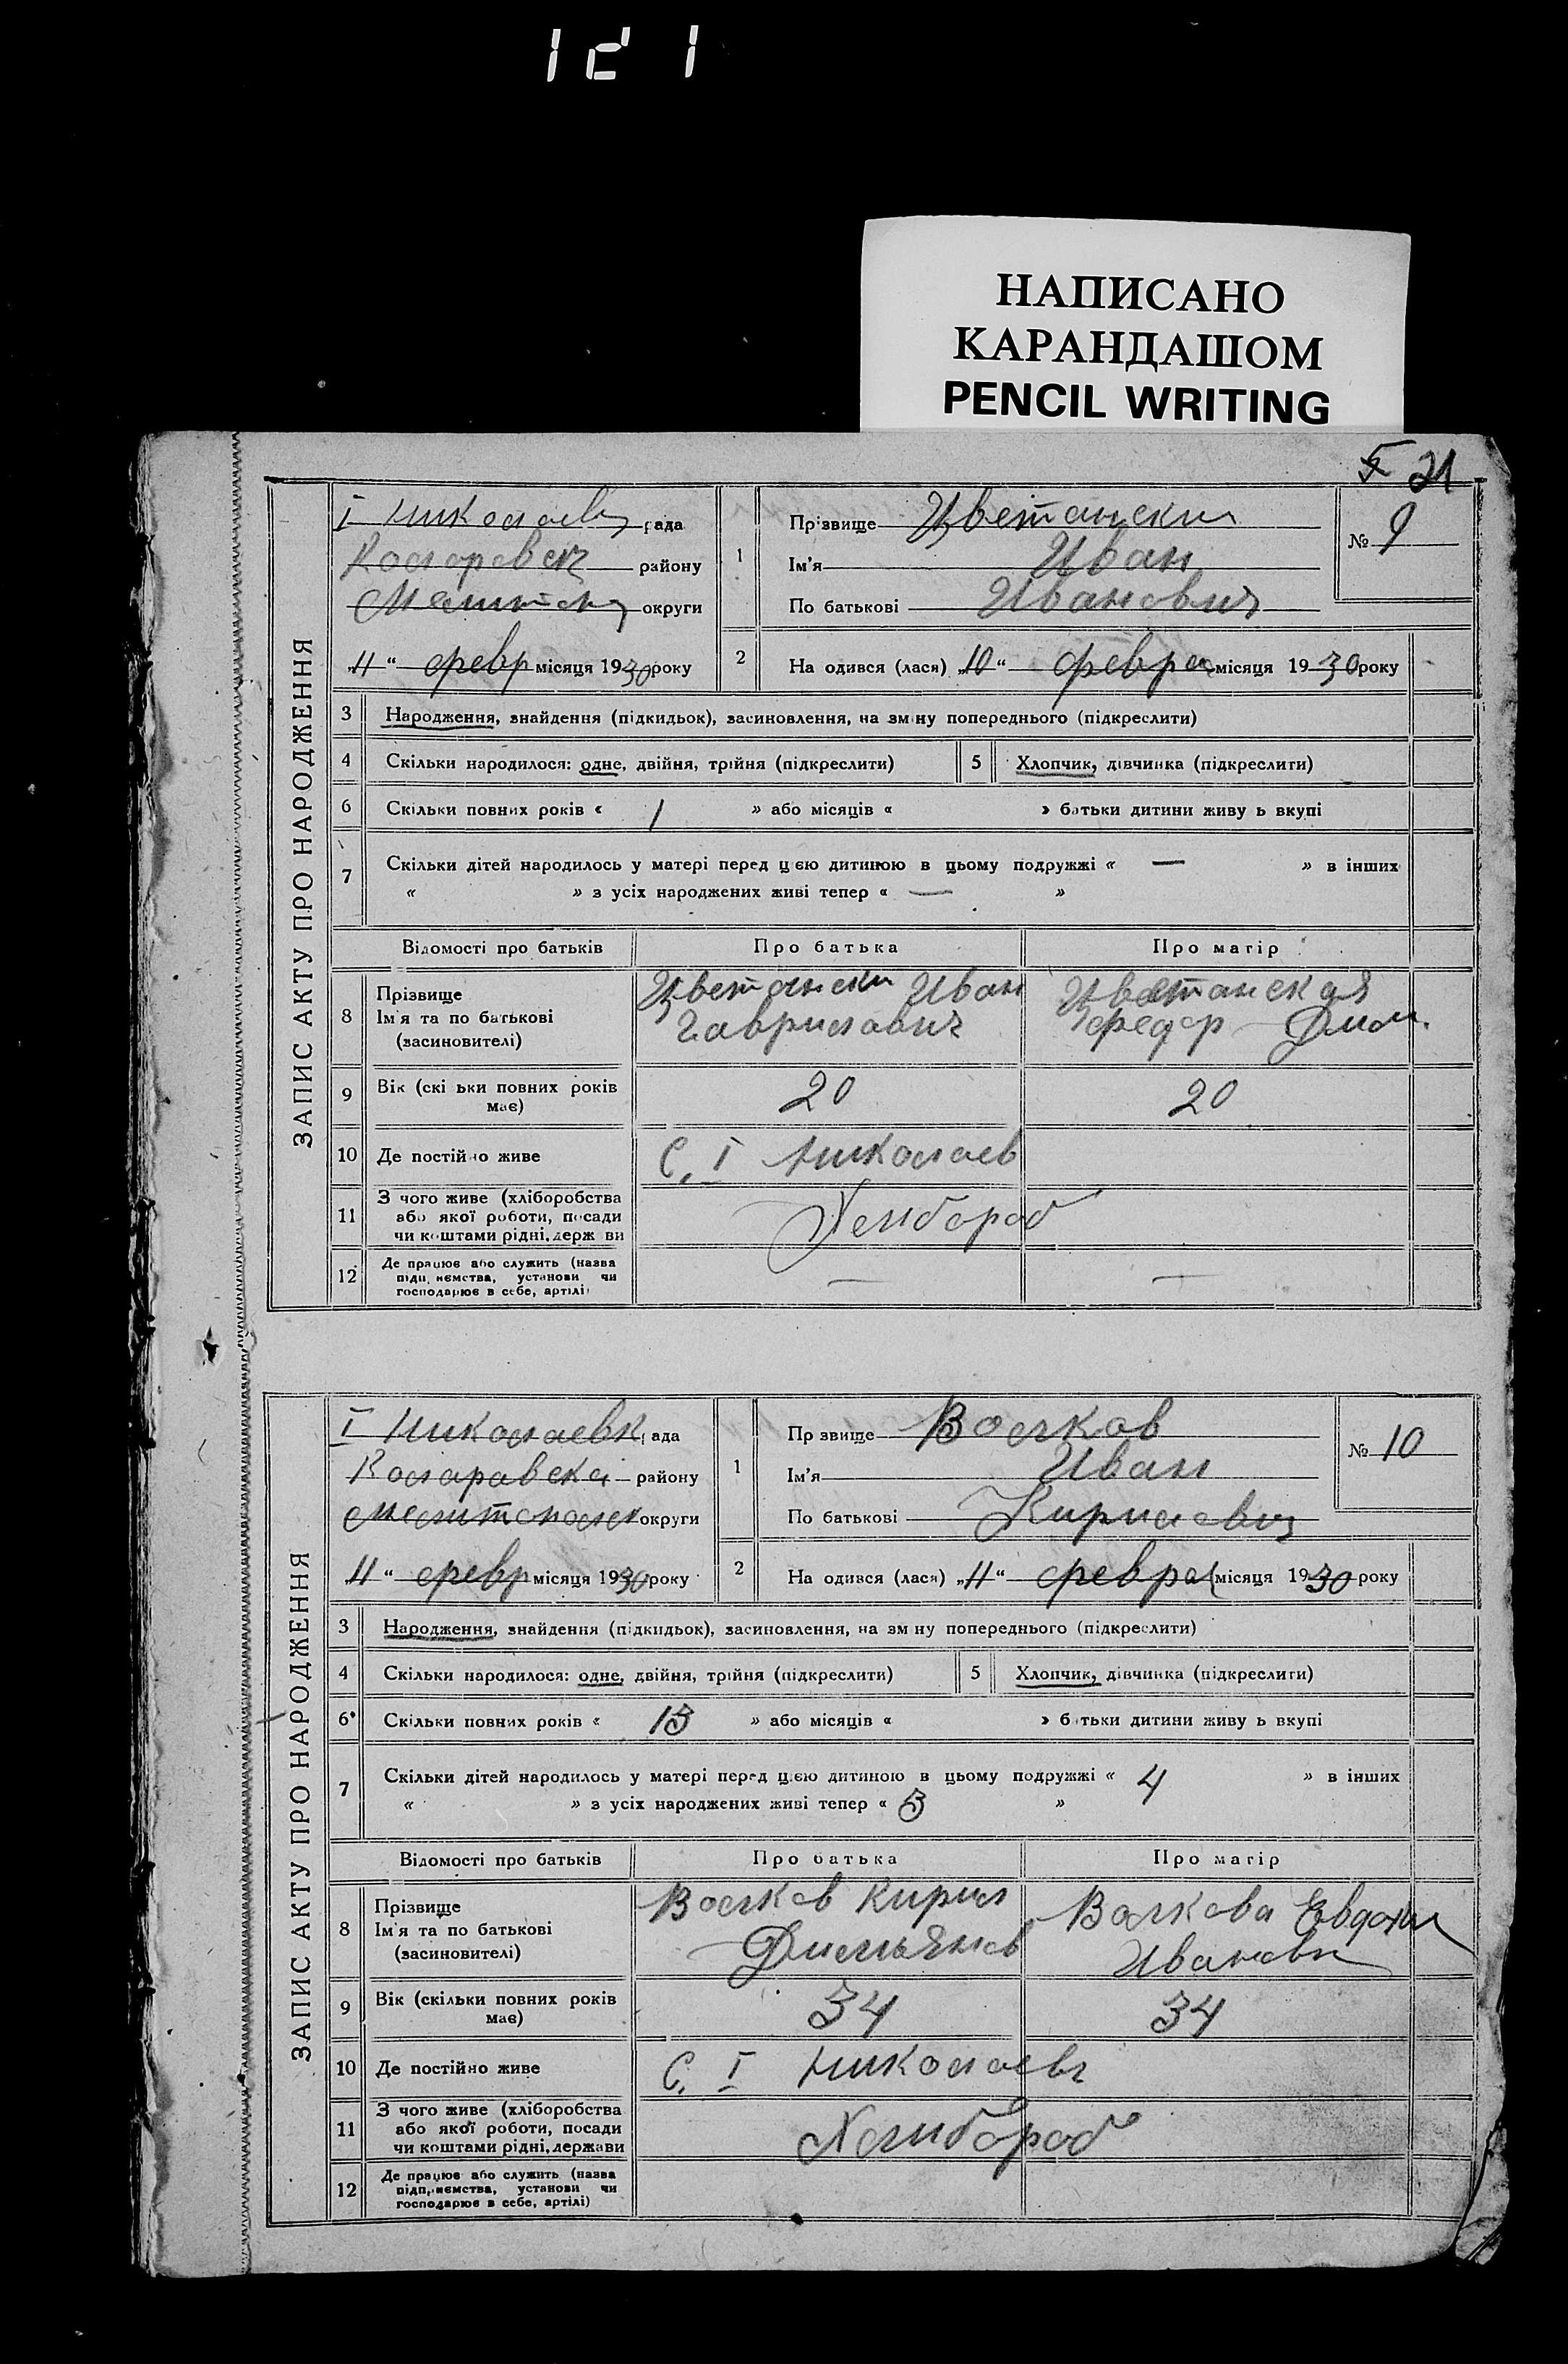 121
НАПИСАНО
КАРАНДАШОМ
PENCIL WRITING
21
ЗАПИС АКТУ ПРО НАРОДЖЕННЯ
I Николаев рада
Коларовск району
округи
„11“ февр місяця 1930 року
1 Прізвище Цветански
Ім'я Иван
По батькові Иванович
№ 9
2 На одився (лася) „10“ февра місяця 1930 року
3 Народження, знайдення (підкидьок), засиновлення, на зміну попереднього (підкреслити)
4 Скільки народилося: одне, двійня, трійня (підкреслити) 5 Хлопчик, дівчинка (підкреслити)
6 Скільки повних років « 1 » або місяців « » батьки дитини живу ь вкупі
7 Скільки дітей народилось у матері перед цією дитиною в цьому подружжі « — » в інших
« » з усіх народжених живі тепер « — »
Відомості про батьків Про батька Про матір
8 Прізвище
Ім'я та по батькові
(засиновителі)
Цветански Иван
Гаврилович
Цветанская
Федор Дмит.
9 Вік (скі ьки повних років
має)
20 20
10 Де постійно живе С. I Николаев
11 З чого живе (хліборобства
або якої роботи, посади
чи коштами рідні, держ ви
Хлибороб
12 Де працює або служить (назва
підп, иємства, установи чи
господарює в себе, артілі)
— —
ЗАПИС АКТУ ПРО НАРОДЖЕННЯ
I Николаевк рада
Коларавска району
Мелитополск округи
„11“ февр місяця 1930 року
1 Пр звище Волков
Ім'я Иван
По батькові Кирилович
№ 10
2 На одився (лася) „11“ феврал місяця 1930 року
3 Народження, знайдення (підкидьок), засиновлення, на зміну попереднього (підкреслити)
4 Скільки народилося: одне, двійня, трійня (підкреслити) 5 Хлопчик, дівчинка (підкреслити)
6 Скільки повних років « 13 » або місяців « » батьки дитини живу ь вкупі
7 Скільки дітей народилось у матері перед цією дитиною в цьому подружжі « 4 » в інших
« » з усіх народжених живі тепер « 3 »
Відомості про батьків Про батька Про матір
8 Прізвище
Ім'я та по батькові
(засиновителі)
Волков Кирил
Димьянов
Волкова Евдоки
Ивановн
9 Вік (скільки повних років
має)
34 34
10 Де постійно живе С. I Николаевк
11 З чого живе (хліборобства
або якої роботи, посади
чи коштами рідні, держави
Хлибороб
12 Де працює або служить (назва
підп, иємства, установи чи
господарює в себе, артілі)